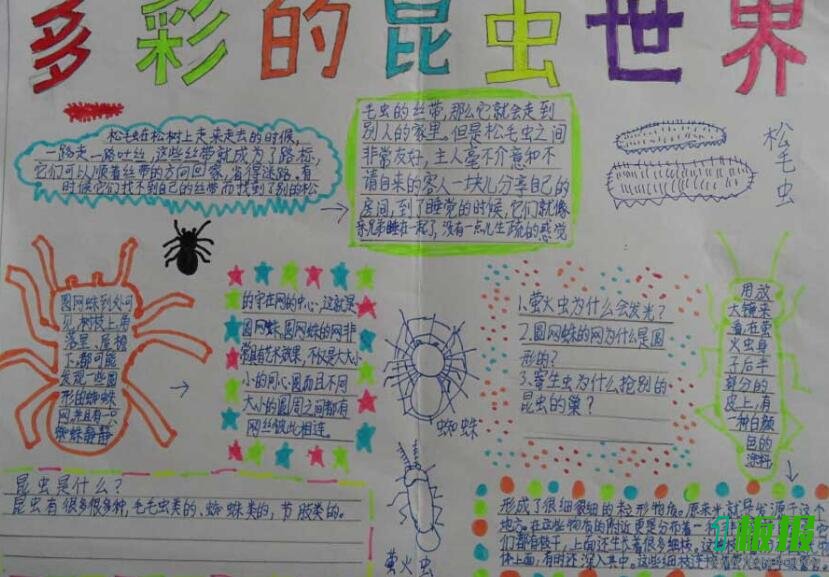 多彩的昆虫世界
松毛虫在松树上走来走去的时候,
一路走一路吐丝,这些丝带就成为了路标,
它们可以顺着丝带的方向回家,省得迷路。有
时候它们找不到自己的丝带而找到了别的松
毛虫的丝带,那么它就会走到
别人的家里。但是松毛虫之间
非常友好,主人毫不介意和不
请自来的客人一块儿分享自己的
房间,到了睡觉的时候,它们就像
亲兄弟睡在一起了,没有一点儿生疏的感觉
松毛虫
圆网蛛到处可
见,树枝上角
落里、屋檐
下,都可能
发现一些圆
形的蜘蛛
网,并且有一只
蜘蛛静静
的守在网的中心,这就是
圆网蛛。圆网蛛的网非
常具有艺术效果,不仅是大大小
小的同心圆而且不同
大小的圆周之间都有
网丝彼此相连。
蜘蛛
1.萤火虫为什么会发光?
2.圆网蛛的网为什么是圆
形的?
3.寄生虫为什么抢别的
昆虫的巢?
用放
大镜来
看,在萤
火虫身
子后半
部分的
皮上,有
一种白颜
色的
涂料
昆虫是什么?
昆虫有很多很多种,毛毛虫类的、蜘蛛类的,节肢类的。
萤火虫
形成了很细很细的粒形物质。原来光就是发源于这个
地方。在这些物质的附近更是分布着一
们都有枝干,上面还生长着很多细枝。这
体上面,有时还深入其中。这些细枝连
板报